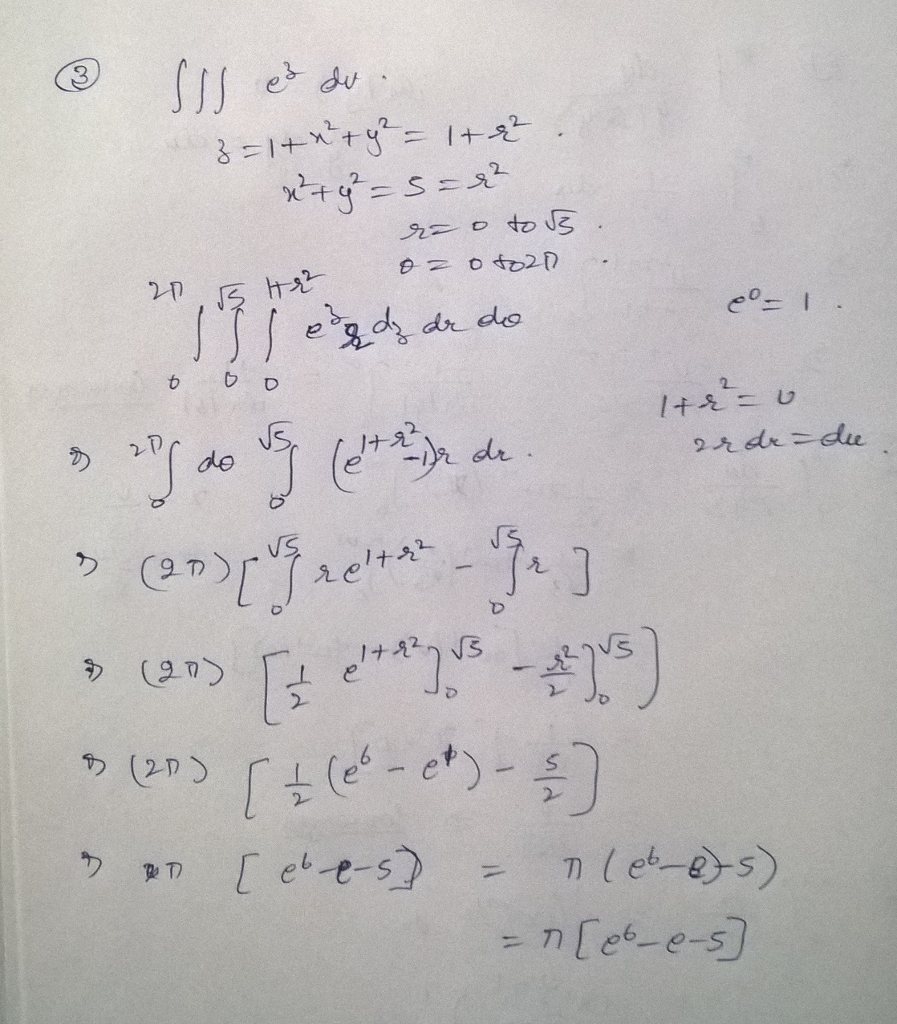 ③ ∫∫∫ e^z dv.
z = 1 + x² + y² = 1 + r².
x² + y² = 5 = r²
r = 0 to √5.
θ = 0 to 2π.
∫₀^{2π} ∫₀^{√5} ∫₀^{1+r²} e^z r dz dr dθ
e⁰ = 1.
1 + r² = u
2r dr = du.
⇒ ∫₀^{2π} dθ ∫₀^{√5} (e^{1+r²} - 1) r dr.
⇒ (2π) [ ∫₀^{√5} r e^{1+r²} - ∫₀^{√5} r ]
⇒ (2π) [ 1/2 e^{1+r²} ]₀^{√5} - r²/2 ]₀^{√5} )
⇒ (2π) [ 1/2 (e⁶ - e¹) - 5/2 ]
⇒ π [ e⁶ - e - 5 ] = π (e⁶ - e) - 5)
= π [e⁶ - e - 5]